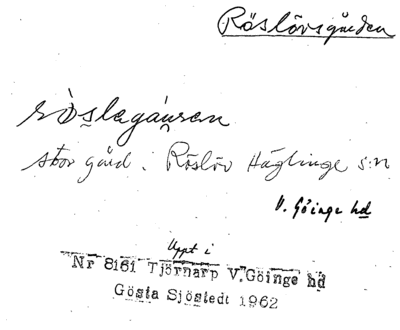 Röslövsgården
rò̤slagá̤ʋan
stor gård i Röslöv Häglinge s:n
V. Göinge hd
Uppt i
Nr 8161 Tjörnarp V. Göinge hd
Gösta Sjöstedt 1962